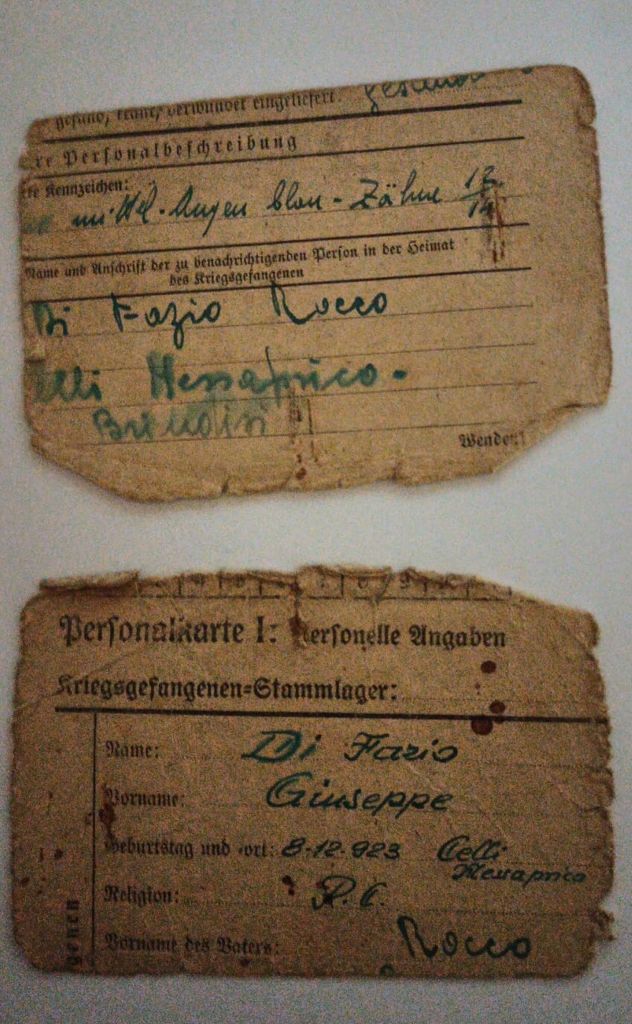 gesund, krank, verwundet eingeliefert: gesund
Personalbeschreibung
Kennzeichen:
mittel - Augen blau - Zähne 12/14
Name und Anschrift der zu benachrichtigenden Person in der Heimat
des Kriegsgefangenen
Di Fazio Rocco
elli Messaprico -
Brindisi
Wenden!
Personalkarte I: Personelle Angaben
Kriegsgefangenen-Stammlager:
Name: Di Fazio
Vorname: Giuseppe
Geburtstag und -ort: 8-12-923 Celli
Messaprico
Religion: R. C.
Vorname des Vaters: Rocco